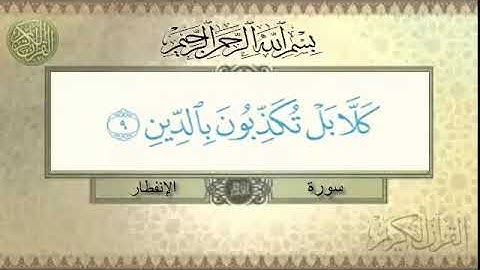 بِسْمِ اللَّهِ الرَّحْمَٰنِ الرَّحِيمِ
كَلَّا بَلْ تُكَذِّبُونَ بِالدِّينِ ٩
سورة الإنفطار
القرآن الكريم